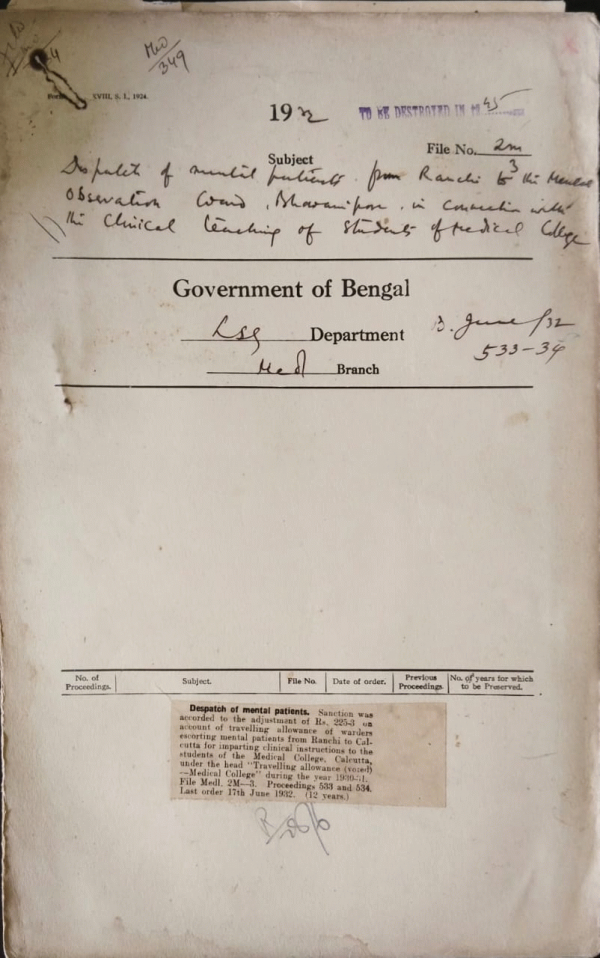 Med
349
XVIII, S. I., 1924.
1932
TO BE DESTROYED IN 1945
File No. 2m
3
Subject
Despatch of mental patients from Ranchi to the Mental
Observation Ward, Bhowanipore, in connection with
the Clinical teaching of Students of Medical College
Government of Bengal
LSG Department
B. June/32
533-34
Med Branch
No. of Proceedings.
Subject.
File No.
Date of order.
Previous Proceedings.
No. of years for which to be Preserved.
Despatch of mental patients. Sanction was
accorded to the adjustment of Rs. 225-3 on
account of travelling allowance of warders
escorting mental patients from Ranchi to Cal-
cutta for imparting clinical instructions to the
students of the Medical College, Calcutta,
under the head "Travelling allowance (voted)
—Medical College" during the year 1930-31.
File Medl. 2M—3. Proceedings 533 and 534.
Last order 17th June 1932. (12 years.)